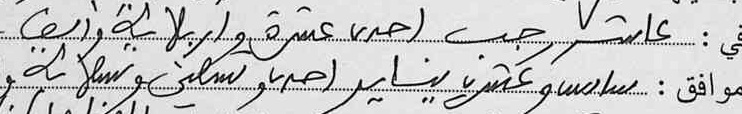 في : عاشر رجب احدى عشرة واربعمائة والف
موافق : سادس وعشرين يناير احدى وتسعين وتسعمائة و